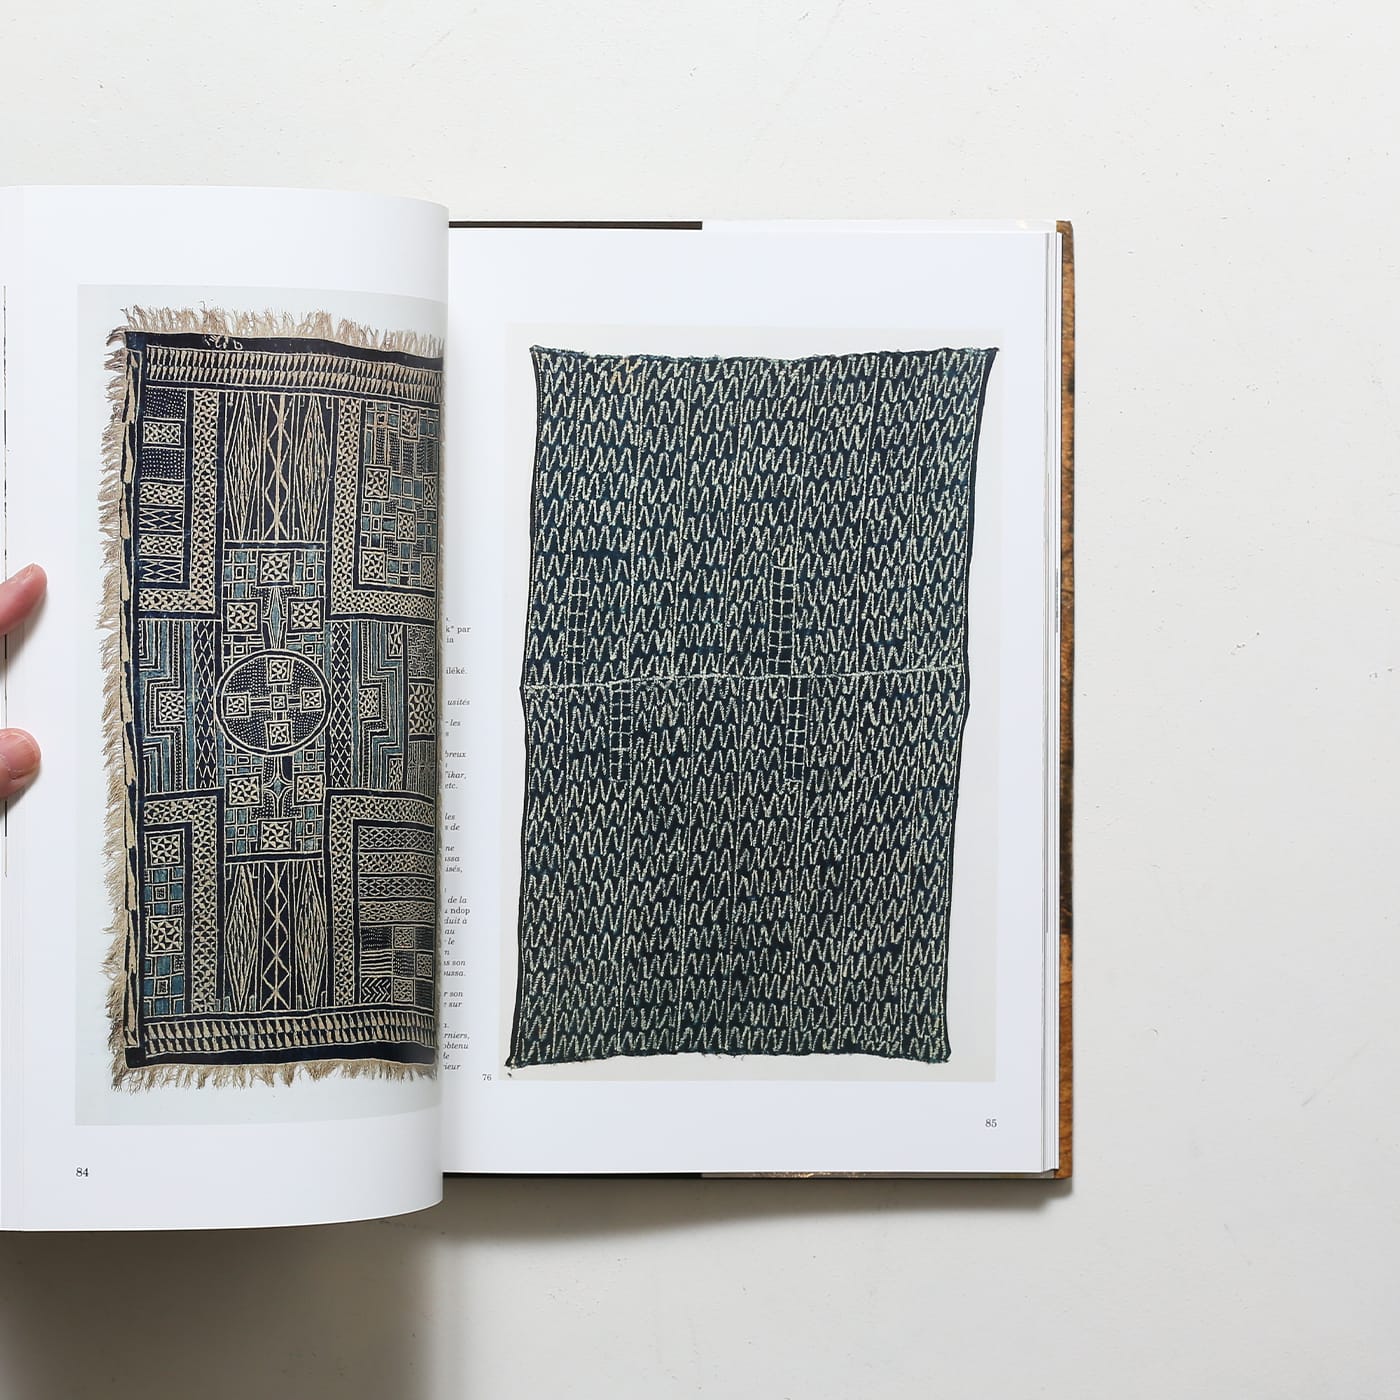 84
k" par
ia
iléké.
usités
les
s
breux
Tikar,
etc.
les
s de
ne
ussa
usés,
de la
u ndop
duit à
au
le
n
ns son
oussa.
r son
e sur
n.
rniers,
obtenu
de
rieur
76
85